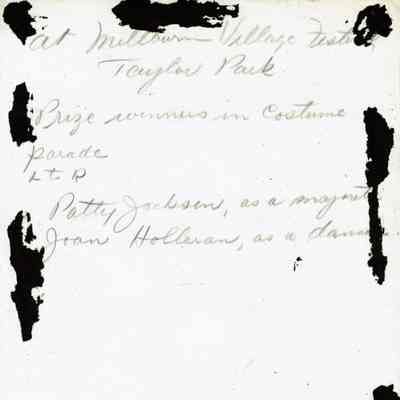 at Millburn Village
Taylor Park
Prize winners in Costume
parade
L to R
Patty Jackson, as a
Joan Holleran, as a